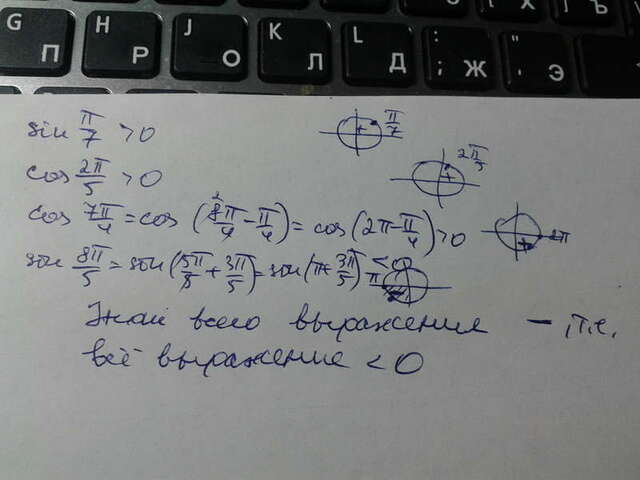 G H J K L : ; " '
П Р О Л Д Ж Э
sin π/7 >0 π/7
cos 2π/5 >0 2π/5
cos 7π/4 = cos (8π/4 - π/4) = cos (2π - π/4) >0 2π
sin 8π/5 = sin (5π/5 + 3π/5) = sin (π + 3π/5) <0 π
Знак всего выражения - , т.е.
всё выражение <0